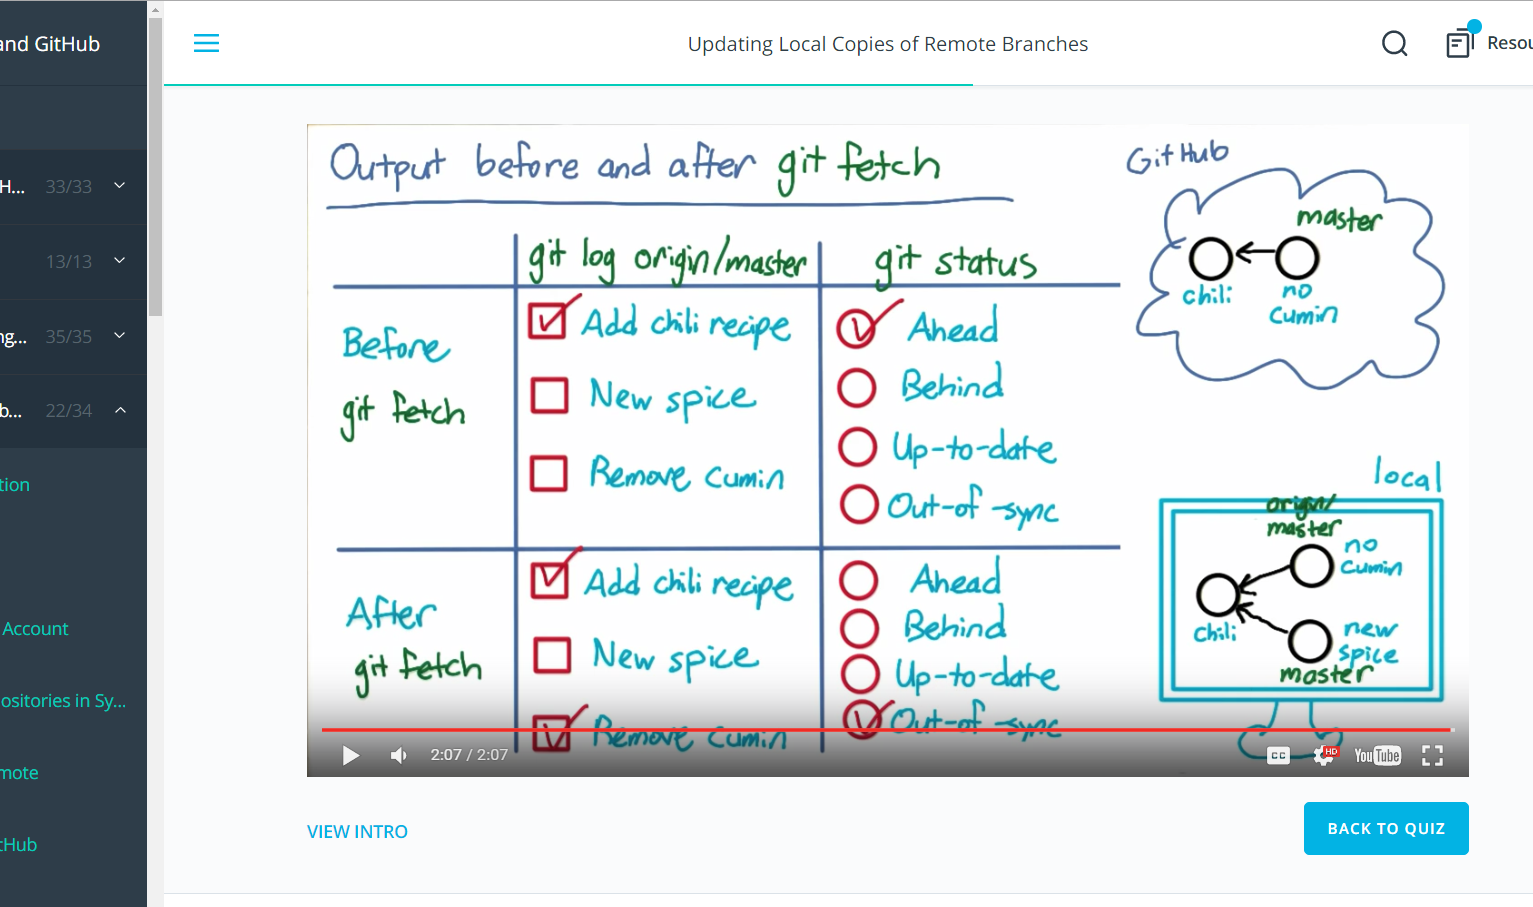 and GitHub
Updating Local Copies of Remote Branches
Resou
H... 33/33
13/13
ng... 35/35
b... 22/34
tion
Account
ositories in Sy...
mote
tHub
Output before and after git fetch
git log origin/master
git status
Before
git fetch
Add chili recipe
New spice
Remove cumin
Ahead
Behind
Up-to-date
Out-of-sync
After
git fetch
Add chili recipe
New spice
Remove cumin
Ahead
Behind
Up-to-date
Out-of-sync
GitHub
master
chili
no
cumin
local
origin/
master
no
cumin
chili
new
spice
master
2:07 / 2:07
CC
HD
YouTube
VIEW INTRO
BACK TO QUIZ